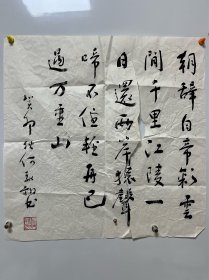 朝辭白帝彩雲
間千里江陵一
日還兩岸猿聲
啼不住輕舟已
過萬重山
癸卯